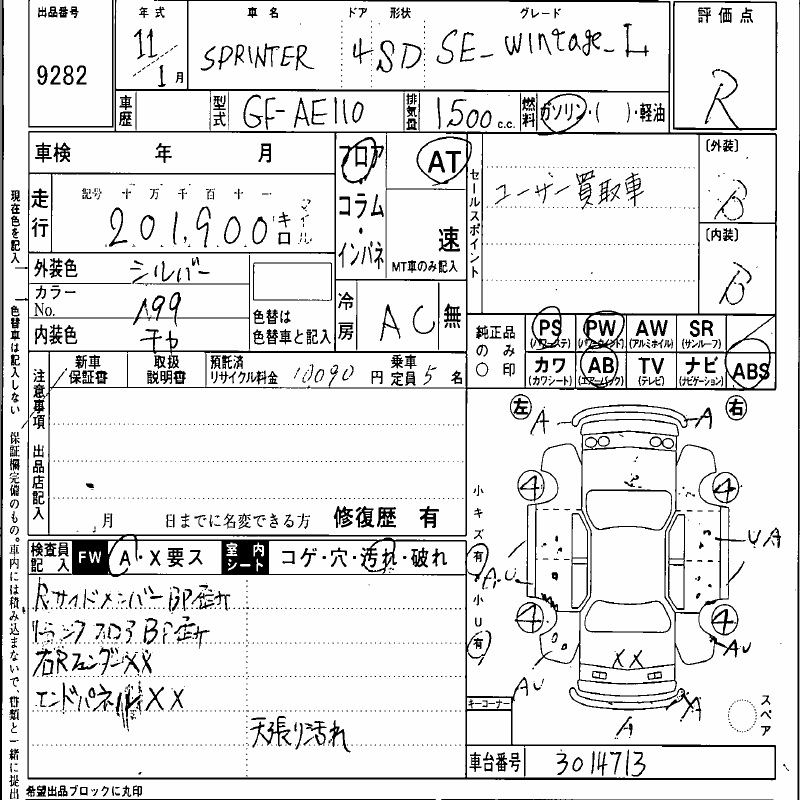 出品番号 年式 車名 ドア 形状 グレード 評価点
9282 11/1月 SPRINTER 4 SD SE-wintage-L R
車歴 型式 GF-AE110 排気量 1500 c.c. 燃料 ガソリン・( )・軽油
車検 年 月 フロア AT 〔外装〕
セールスポイント ユーザー買取車 B
走行 記号 十 万 千 百 十 一 マイル コラム
201,900 キロ インパネ 速 〔内装〕
MT車のみ記入 B
外装色 シルバー
カラーNo. 199 色替は 冷房 AC 無
内装色 チャ 色替車と記入
純正品のみ○印 PS (パワーステ) PW (パワーウインド) AW (アルミホイル) SR (サンルーフ)
カワ (カワシート) AB (エアーバック) TV (テレビ) ナビ (ナビゲーション) ABS
注意事項 新車保証書 取扱説明書 預託済リサイクル料金 10090 円 乗車定員 5 名
出品店記入
月 日までに名変できる方 修復歴 有
検査員記入 FW A・X要ス 室内シート コゲ・穴・汚れ・破れ
RサイドメンバーBP歪ナ
トランクフロアBP歪ナ
右RフェンダーXX
エンドパネルXX
天張り汚れ
現在色を記入 色替車は記入しない 保証欄完備のもの。車内には積み込まないで、書類と一緒に提出
希望出品ブロックに丸印
左 右
A A
4 4
小キズ 有 小U 有
A.U UA
4 4
AU AU
XX
XA
A
キーコーナー スペア
車台番号 3014713